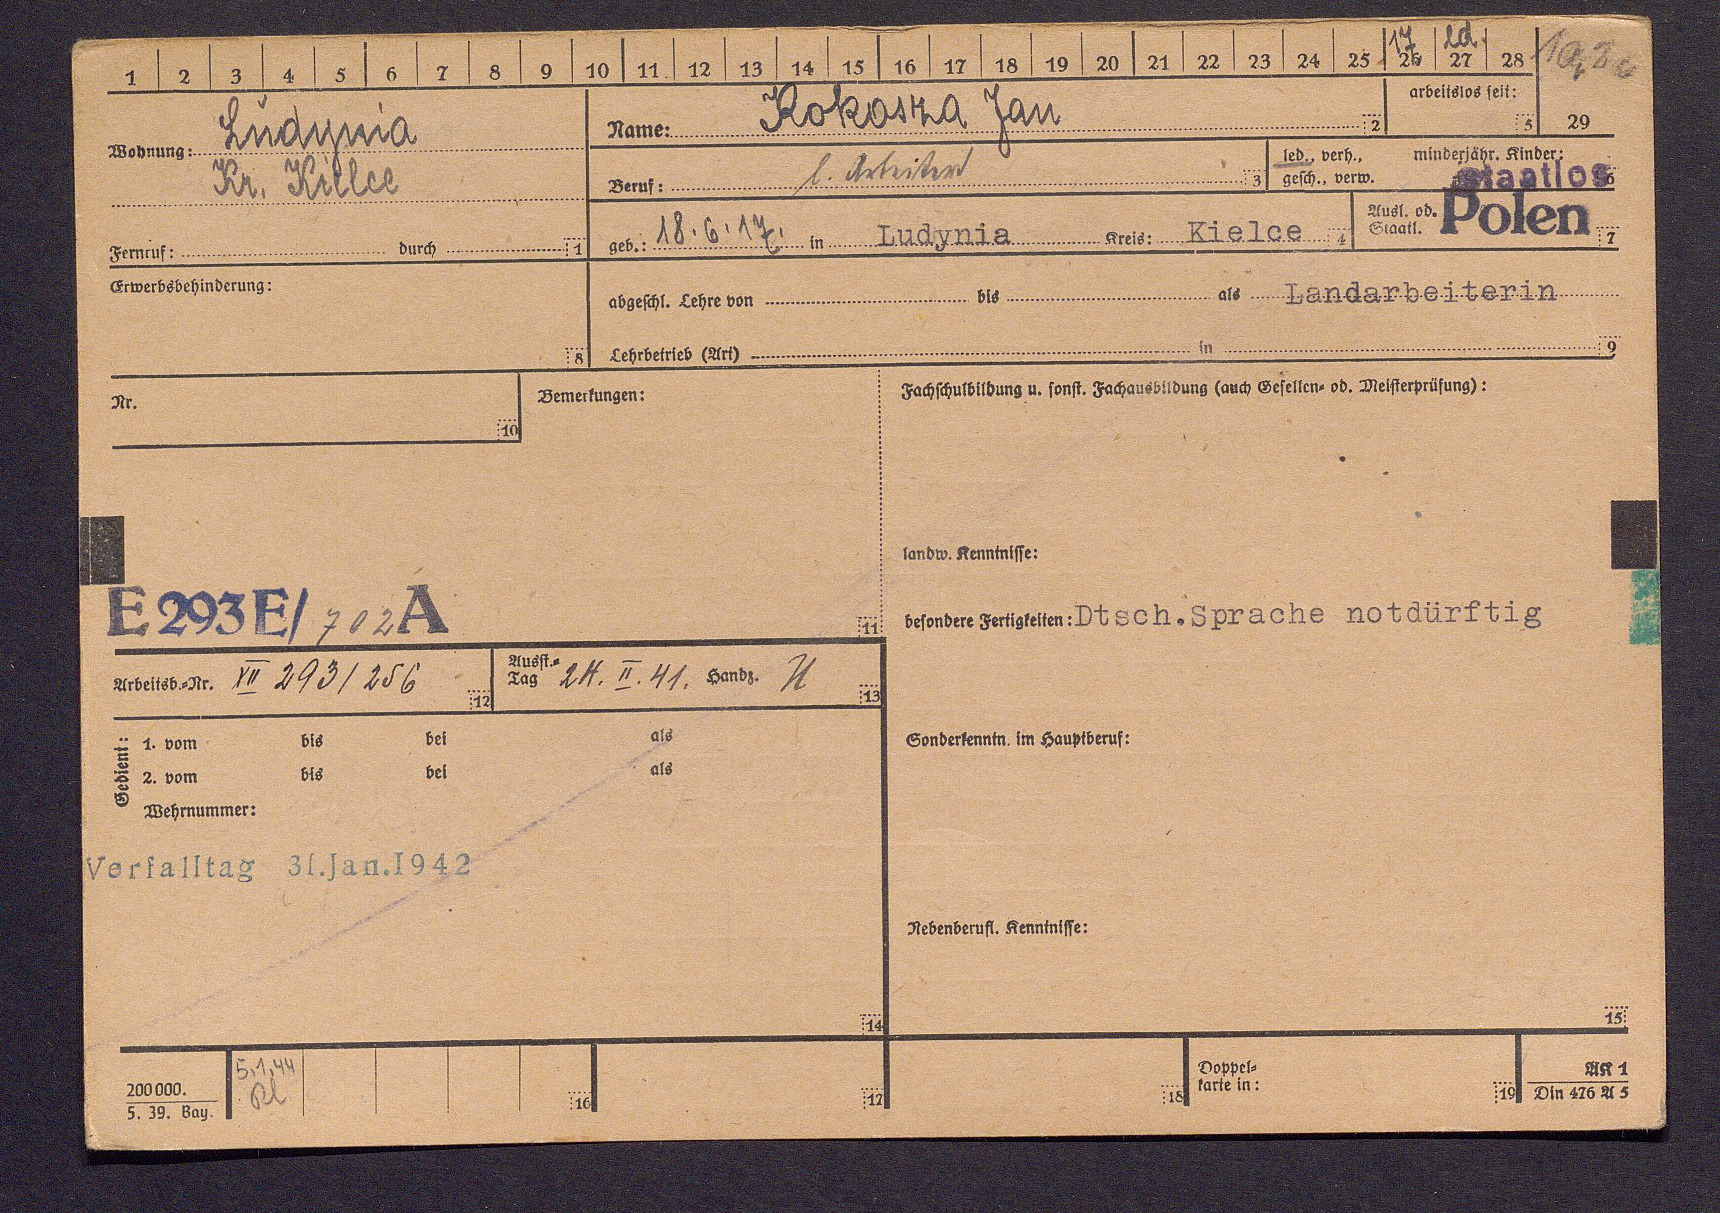 1 2 3 4 5 6 7 8 9 10 11 12 13 14 15 16 17 18 19 20 21 22 23 24 25 26 27 28 29
17 ld.
Wohnung: Ludynia
Kr. Kielce
Fernruf: durch 1
Name: Kokosza Jan 2
arbeitslos seit: 5
Beruf: l. Arbeiter 3
led., verh., gesch., verw.
minderjähr. Kinder: 6
staatlos
geb.: 18.6.17. in Ludynia Kreis: Kielce 4
Ausl. od. Staatl. Polen 7
Erwerbsbehinderung: 8
abgeschl. Lehre von bis als Landarbeiterin
Lehrbetrieb (Art) in 9
Nr. 10
Bemerkungen:
E 293 E/ 702 A 11
Fachschulbildung u. sonst. Fachausbildung (auch Gesellen- od. Meisterprüfung):
landw. Kenntnisse:
besondere Fertigkeiten: Dtsch.Sprache notdürftig
Sonderkenntn. im Hauptberuf:
Nebenberufl. Kenntnisse:
15
Arbeitsb.-Nr. XII 293/256 12
Ausst.-Tag 24. II. 41. Handz. 13
Gedient:
1. vom bis bei als
2. vom bis bei als
Wehrnummer:
Verfalltag 31.Jan.1942
14
200000.
5. 39. Bay.
5.1.44
16 17 18
Doppelkarte in: 19
AK 1
Din 476 A 5